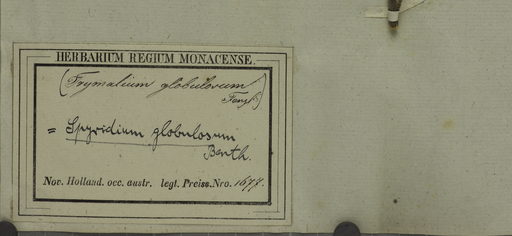 HERBARIUM REGIUM MONACENSE.
(Trymalium globulosum
Fenzl.)
= Spyridium globulosum
Benth.
Nov. Holland. occ. austr. legt. Preiss. Nro. 1677.